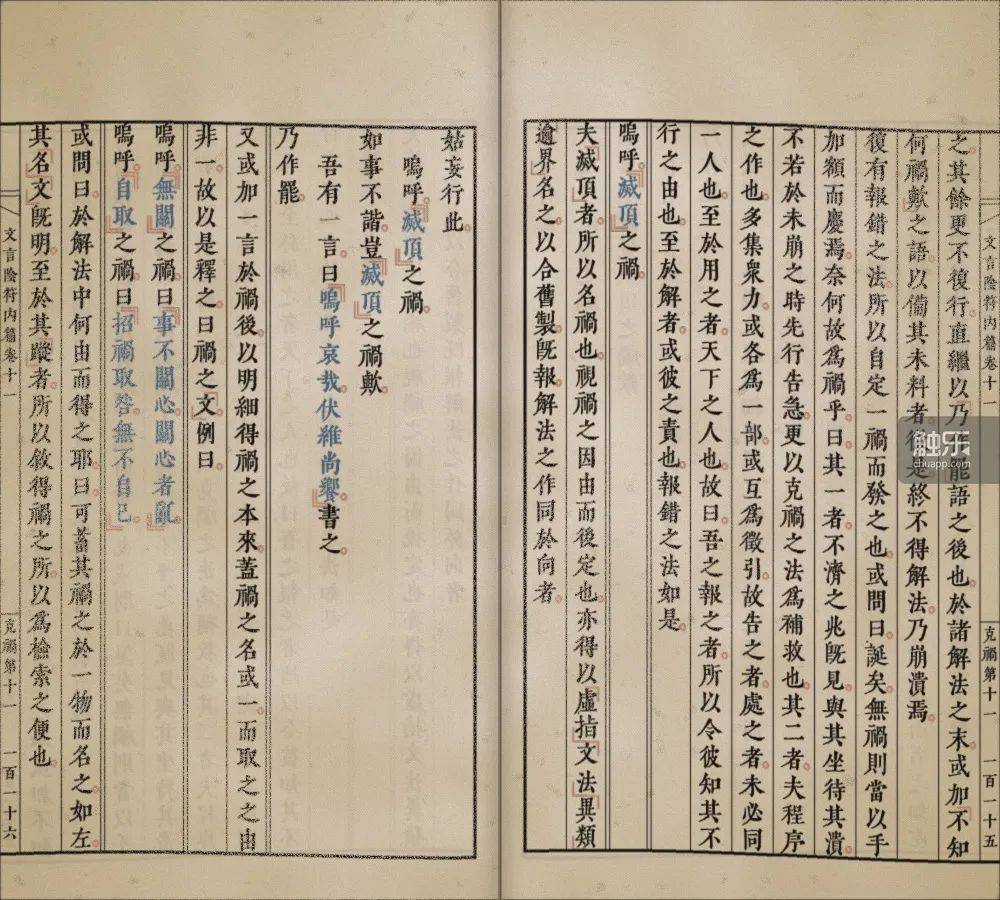 之其餘更不復行直繼以乃
語之後也於諸解法之末或加不知
何禍歟之語以備其未料者
是終不得解法乃崩潰焉
復有報錯之法所以自定一禍而發之也或問曰誕矣無禍則當以手
加額而慶焉奈何故為禍乎曰其一者不濟之兆既見與其坐待其潰
不若於未崩之時先行告急更以克禍之法為補救也其二者夫程序
之作也多集眾力或各為一部或互為徵引故告之者處之者未必同
一人也至於用之者天下之人也故曰吾之報之者所以令彼知其不
行之由也至於解者或彼之責也報錯之法如是
嗚呼『滅頂』之禍
夫滅頂者所以名禍也視禍之因由而後定也亦得以虛指文法異類
逾界名之以合舊製既報解法之作同於向者
文言陰符內篇卷十一
克禍第十一
一百一十五
姑妄行此
嗚呼『滅頂』之禍
如事不諧豈『滅頂』之禍歟
吾有一言曰『嗚呼哀哉伏維尚饗』書之
乃作罷
又或加一言於禍後以明細得禍之本來蓋禍之名或一而取之之由
非一故以是釋之曰禍之文例曰
嗚呼『無關』之禍曰『事不關心關心者亂』
嗚呼『自取』之禍曰『招禍取咎無不自己』
或問曰於解法中何由而得之耶曰可蓄其禍之於一物而名之如左
其名文既明至於其蹤者所以敘得禍之所以為檢索之便也
文言陰符內篇卷十一
克禍第十一
一百一十六
触乐
chuapp.com